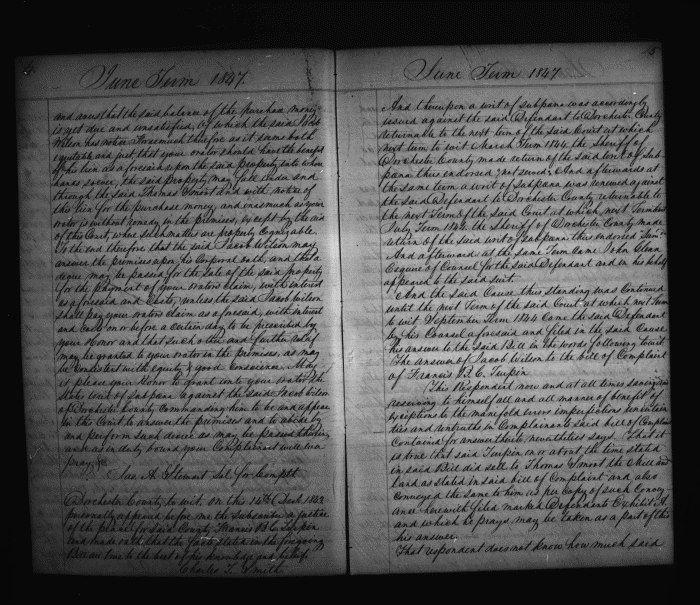 June Term 1847.
and avers that the said balance of the purchase money
is yet due and unsatisfied, of which the said Jacob
Wilson has notice. Forasmuch therefore as it seems both
equitable and just that your orator should have the benefit
of his lien as aforesaid upon the said property into whose
hands soever, the said property may fall under and
through the said Thomas Smoot and with notice of
this lien for the purchase money, and inasmuch as your
orator is without remedy in the premises, except by the aid
of this Court, where such matters are properly cognizable.
To the end therefore that the said Jacob Wilson may
answer the premises upon his corporal oath, and that a
decree may be passed for the sale of the said property
for the payment of your orators claim, with interest
as aforesaid and Costs, unless the said Jacob Wilson
shall pay your orators claim as aforesaid, with interest
and Costs on or before a certain day to be prescribed by
your Honor and that such other and further relief
may be granted to your orator in the premises, as may
be consistent with equity & good conscience. May
it please your Honor to grant unto your orator the
States writ of Subpœna against the said Jacob Wilson
of Dorchester County Commanding him to be and appear
in this Court to answer the premises and to abide by
and perform such decree as may be passed therein,
and as in duty bound your Complainant will ever
pray &c
Jas. A. Stewart Sol for Complt
Dorchester County, to wit, on this 14th Decr 1843
personally appeared before me the Subscriber a justice
of the peace for said County, Francis B. C. Turpin
and made oath that the facts stated in the foregoing
Bill are true to the best of his knowledge and belief.
Charles F. Smith
15
June Term 1847
And thereupon a writ of subpœna was accordingly
issued against the said Defendant to Dorchester County
returnable to the next term of the said Court at which
next term to wit March Term 1844, the Sheriff of
Dorchester County made return of the said writ of Sub-
pœna thus endorsed "not served". And afterwards at
the same term a writ of Subpœna was renewed against
the said Defendant to Dorchester County returnable to
the next Term of the said Court at which next Term to wit
July Term 1844, the Sheriff of Dorchester County made
return of the said writ of subpœna thus endorsed
And afterwards at the same Term Came John
Esquire of Counsel for the said Defendant and in his behalf
appeared to the said suit.
And the said Cause thus standing was Continued
until the next Term of the said Court at which next Term
to wit September Term 1844 Came the said Defendant
by his Counsel aforesaid and filed in the said Cause
his answer to the said Bill in the words following to wit
The answer of Jacob Wilson to the bill of Complaint
of Francis B. C. Turpin
This Respondent now and at all times saving and
reserving to himself all and all manner of benefit of
exceptions to the manifold errors imperfections uncertain
ties and untruths in Complainants said bill of Complaint
Contained for answer thereto nevertheless says. That it
is true that said Turpin on or about the time stated
in said Bill did sell to Thomas Smoot the Mill and
Land as stated in said bill of Complaint and also
Conveyed the same to him as per Copy of such Convey
ance herewith filed marked Defendants Exhibit A
and which he prays may be taken as a part of this
his answer.
That respondent does not know how much said